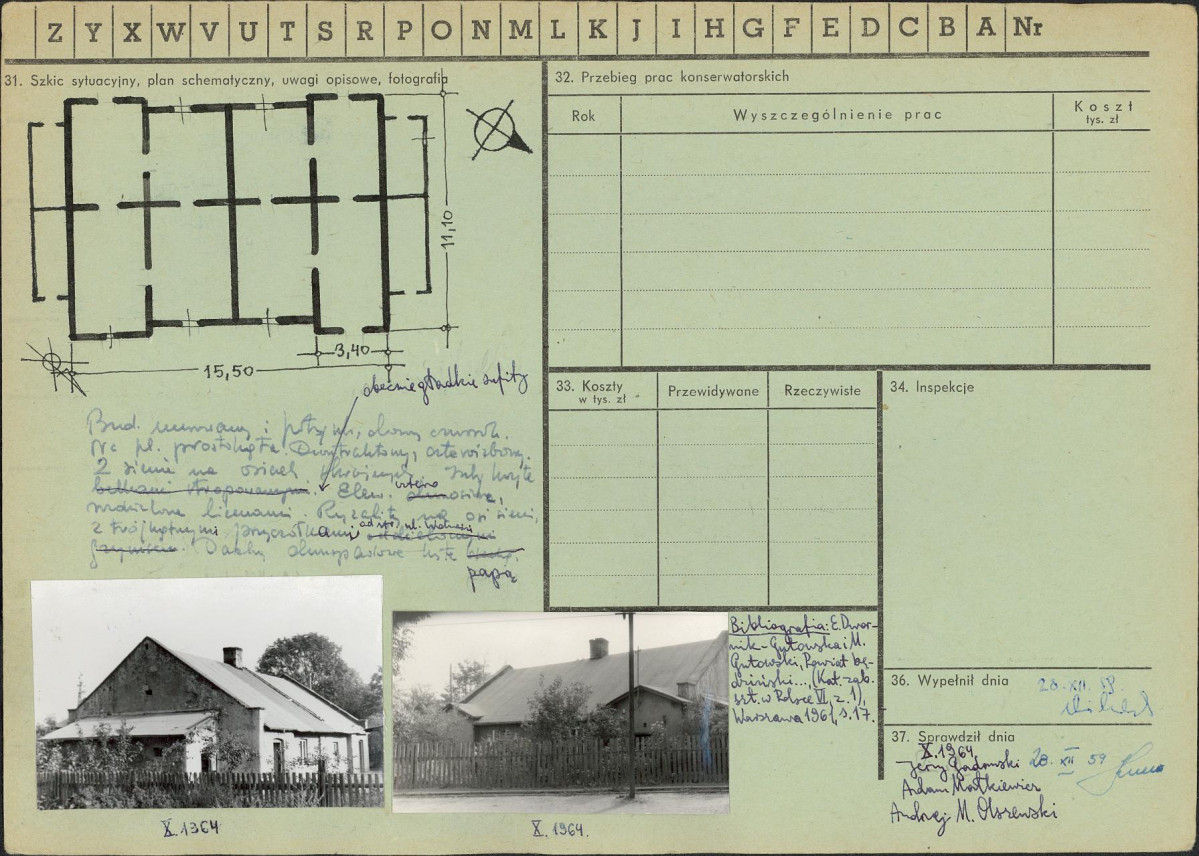 Z Y X W V U T S R P O N M L K J I H G F E D C B A Nr
31. Szkic sytuacyjny, plan schematyczny, uwagi opisowe, fotografia
11,10
3,40
15,50
obecnie gładkie sufity
Bud. murowany i potynk,
Na pl. prostokąta. Dwutraktowy,
2 sienie na osiach
belkami stropowanymi. Elew. cztero osiowe,
lizenami. Ryzality na osi sieni,
z trójkątnymi przyczółkami od str. ul.
gzymsem. Dachy dwuspadowe kryte
papą
X. 1964
X. 1964.
32. Przebieg prac konserwatorskich
Rok
Wyszczególnienie prac
Koszt
tys. zł
33. Koszty
w tys. zł
Przewidywane
Rzeczywiste
34. Inspekcje
Bibliografia: E. Dwor-
nik-Gutowska i M.
Gutowski, Powiat bę-
dziński..., (Kat. zab.
szt. w Polsce VI, z. 1),
Warszawa 1961, s. 17.
36. Wypełnił dnia
28.XII.59.
37. Sprawdził dnia
X. 1964.
Jerzy Gadomski
28. XII 59
Adam Małkiewicz
Andrzej M. Olszewski